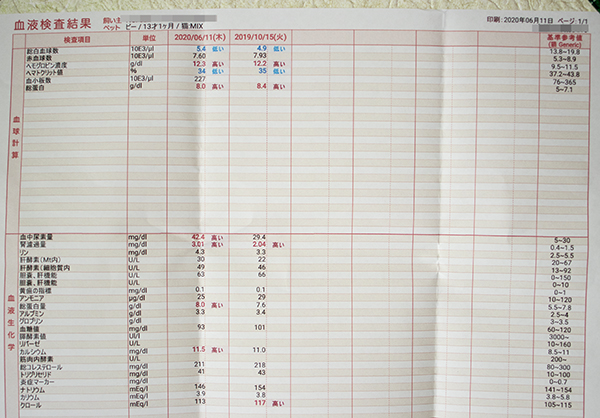 血液検査結果 飼い主 印刷: 2020年06月11日 ページ 1/1
ペット ビー / 13才1ヶ月 / 猫 MIX
検査項目 単位 2020/06/11(木) 2019/10/15(火) 基準参考値 (猫 Generic)
血球計算
総白血球数 10E3/μl 5.4 低い 4.9 低い 13.8~19.8
赤血球数 10E3/μl 7.60 7.93 5.3~8.9
ヘモグロビン濃度 g/dl 12.3 高い 12.2 高い 9.5~11.5
ヘマトクリット値 % 34 低い 35 低い 37.2~43.8
血小板数 10E3/μl 227 76~365
総蛋白 g/dl 8.0 高い 8.4 高い 5~7.1
血液生化学
血中尿素量 mg/dl 42.4 高い 29.4 5~30
腎濾過量 mg/dl 3.01 高い 2.04 高い 0.4~1.5
リン mg/dl 4.3 3.3 2.5~5.5
肝酵素 (Mt内) U/L 30 22 20~67
肝酵素 (細胞質内) U/L 49 46 13~92
胆嚢、肝機能 U/L 63 66 0~150
胆嚢、肝機能 U/L 0~10
黄疸の指標 mg/dl 0.1 0.1 0~1
アンモニア μg/dl 25 29 10~120
総蛋白量 g/dl 8.0 高い 7.6 5.5~7.8
アルブミン g/dl 3.3 3.4 2.5~4
グロブリン g/dl 3~3.5
血糖値 mg/dl 93 101 60~120
膵酵素値 U/L 3000~
リパーゼ U/L 10~160
カルシウム mg/dl 11.5 高い 11.0 8.5~11
筋肉内酵素 U/L 200~
総コレステロール mg/dl 211 218 80~300
トリグリセリド mg/dl 41 43 10~100
炎症マーカー mg/dl 0~0.7
ナトリウム mEq/l 146 154 141~154
カリウム mEq/l 3.9 3.8 3.8~5.8
クロール mEq/l 113 117 高い 105~115